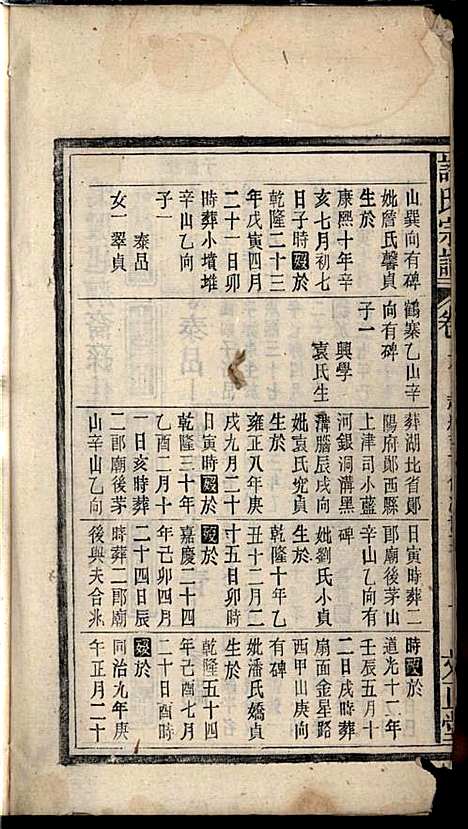 氏宗譜
卷
山巽向有碑
妣詹氏馨貞
生於
康熙十年辛
亥七月初七
日子時歿於
乾隆二十三
年戊寅四月
二十一日卯
時葬小墳堆
辛山乙向
子一
泰品
女一翠貞
鶴寨乙山辛
向有碑
子一
興學
袁氏生
葬湖北省鄖
陽府鄖西縣
上津司小藍
河銀洞溝黑
溝腦辰戌向
妣袁氏貞
生於
雍正八年庚
戌九月二十
日寅時歿於
乾隆三十年
乙酉二月十
一日亥時葬
二郎廟後茅
山辛山乙向
日寅時葬二
郎廟後茅山
辛山乙向有
碑
妣劉氏小貞
生於
乾隆十年乙
丑十二月二
十五日卯時
歿於
嘉慶二十四
年己卯四月
二十四日辰
時葬二郎廟
後與夫合兆
時歿於
道光十二年
壬辰五月十
二日戌時葬
扇面金星路
西甲山庚向
有碑
妣潘氏嬌貞
生於
乾隆五十四
年己酉七月
二十日酉時
歿於
同治九年庚
午正月二十